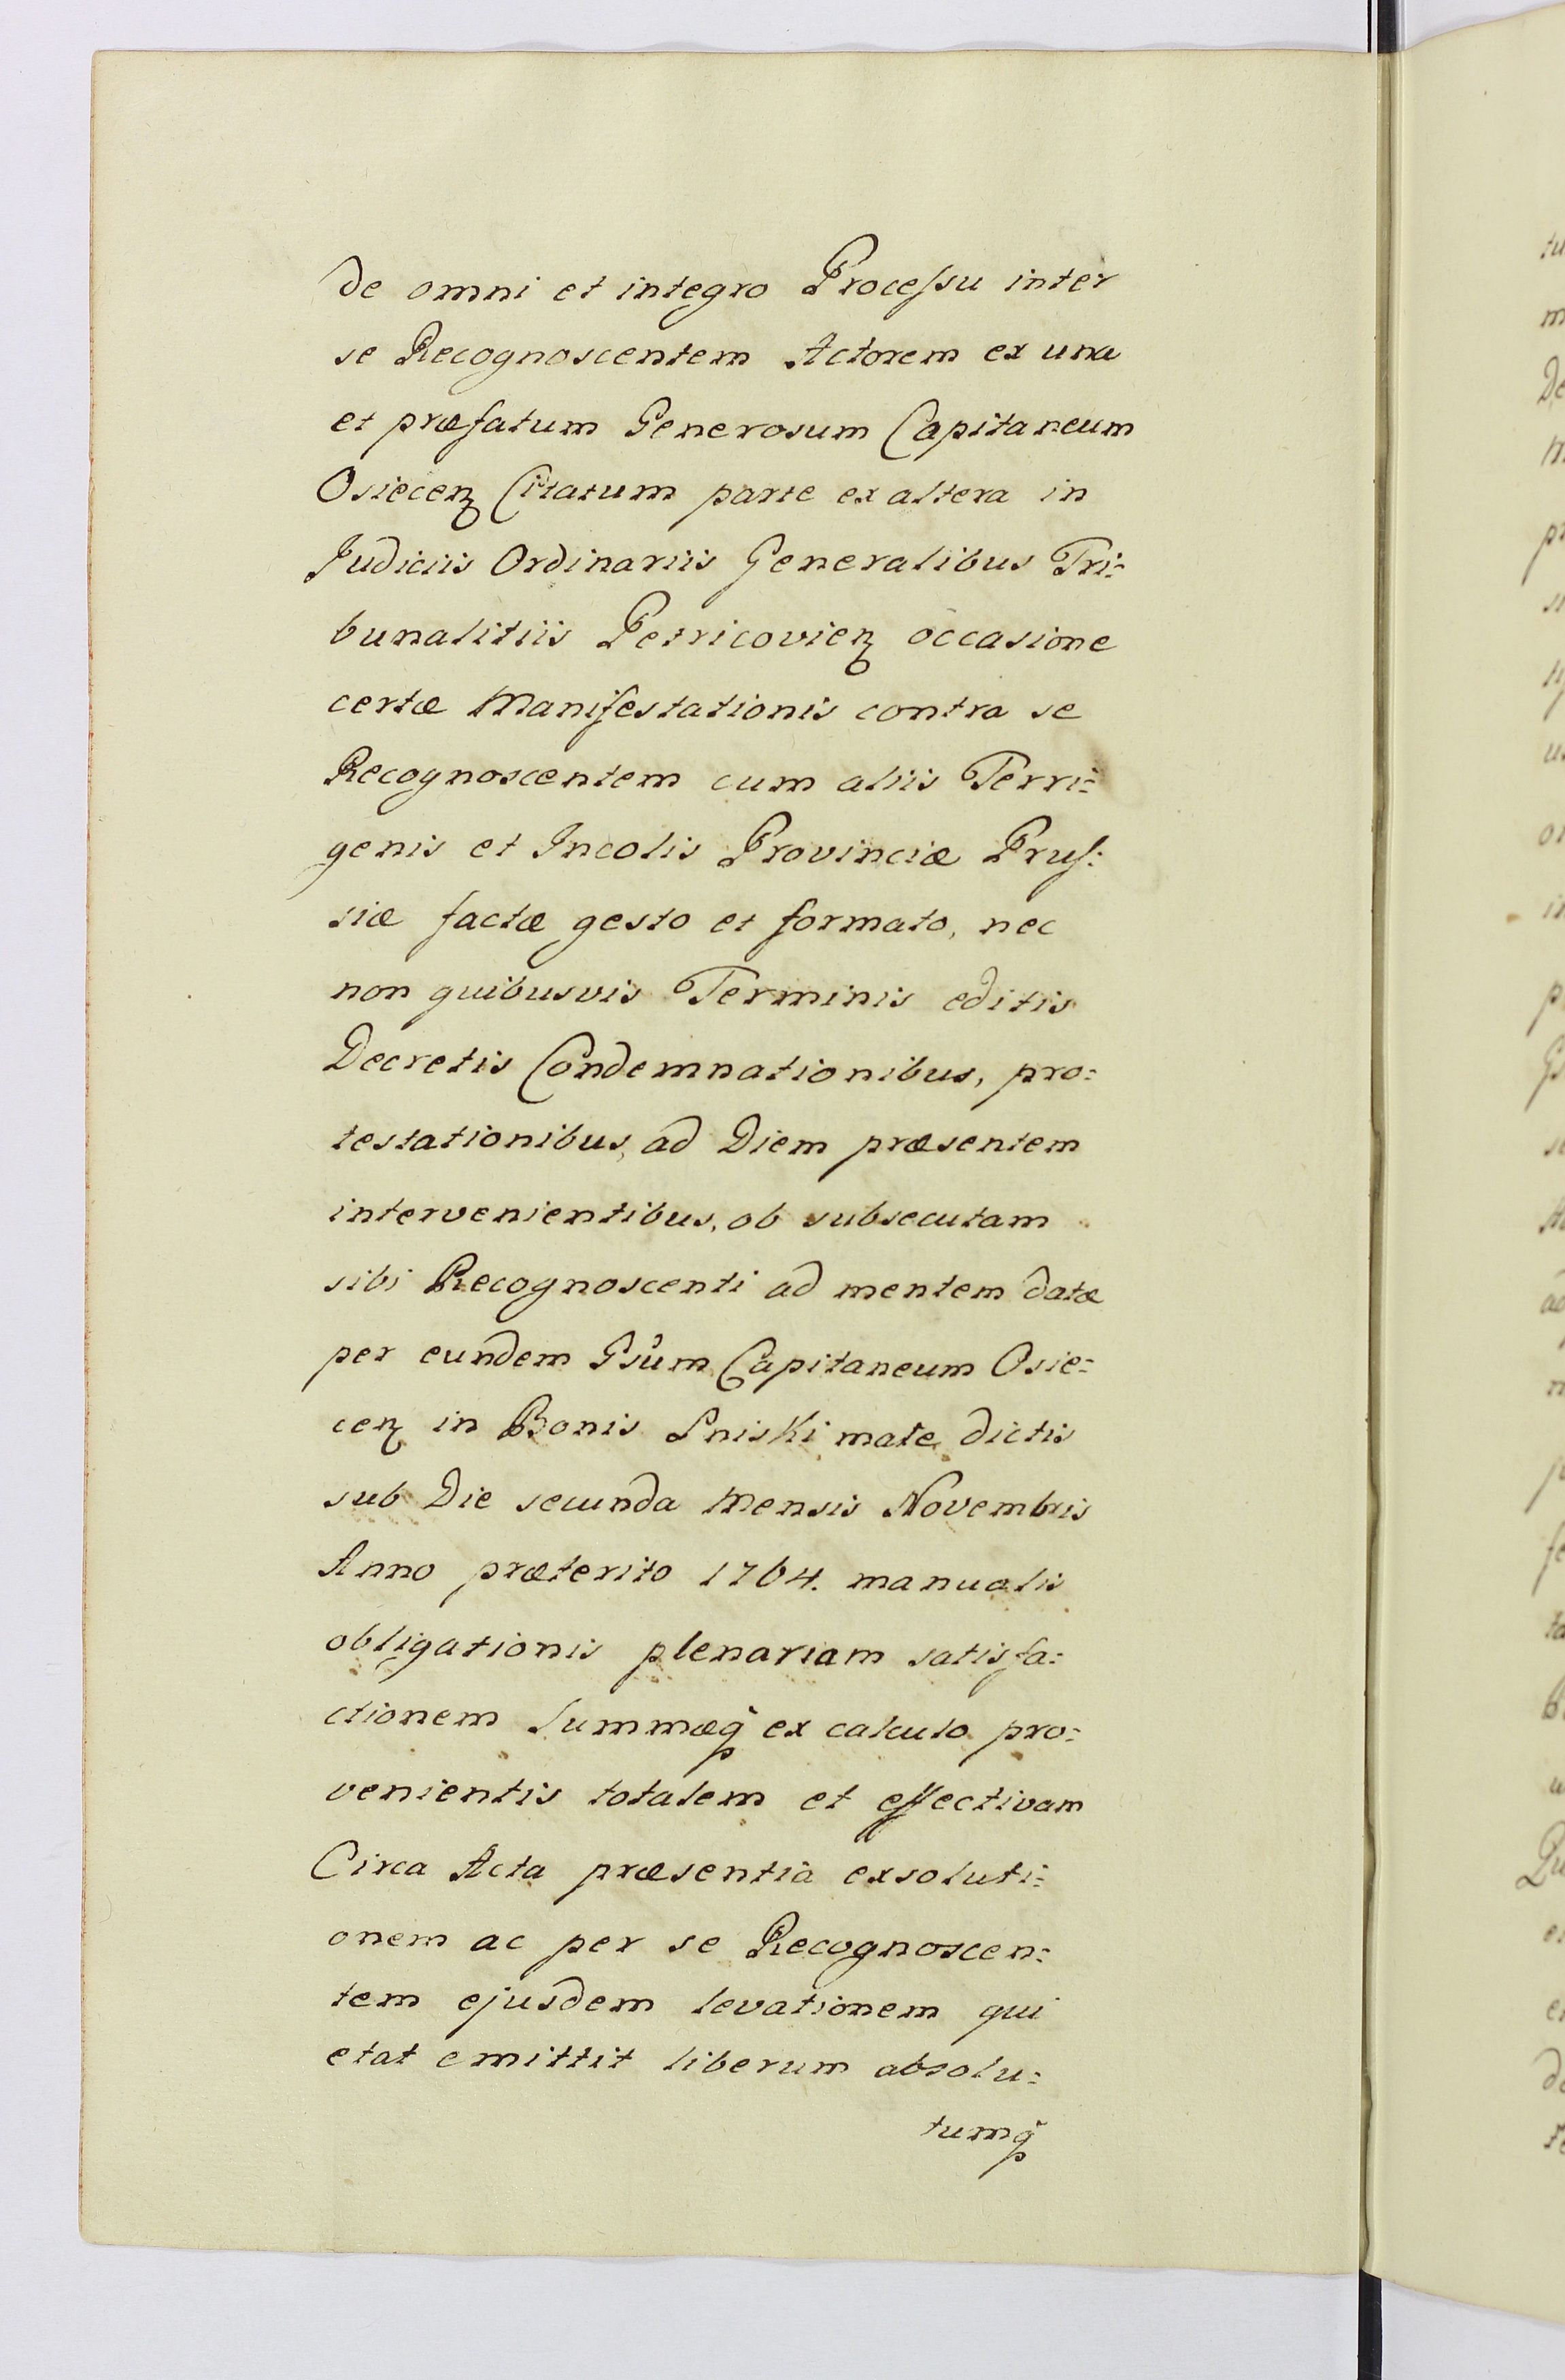 de omni et integro Processu inter
se Recognoscentem Actorem ex una
et præfatum Generosum Capitaneum
Osiecen̄ Citatum parte ex altera in
Judiciis Ordinariis Generalibus Tri:
bunalitiis Petricovien̄ occasione
certæ Manifestationis contra se
Recognoscentem cum aliis Terri:
genis et Incolis Provinciæ Prus:
siæ factæ gesto et formato, nec
non quibusvis Terminis editis
Decretis Condemnationibus, pro:
testationibus, ad Diem præsentem
intervenientibus, ob subsecutam
sibi Recognoscenti ad mentem datæ
per eundem Gsum Capitaneum Osie:
cen̄ in Bonis Lniski male dictis
sub Die secunda Mensis Novembris
Anno præterito 1764. manualis
obligationis plenariam satisfa:
ctionem Summæq̃ ex calculo pro:
venientis totalem et effectivam
Circa Acta præsentia exsoluti:
onem ac per se Recognoscen:
tem ejusdem levationem qui
etat emittit liberum absolu:
tumq̃